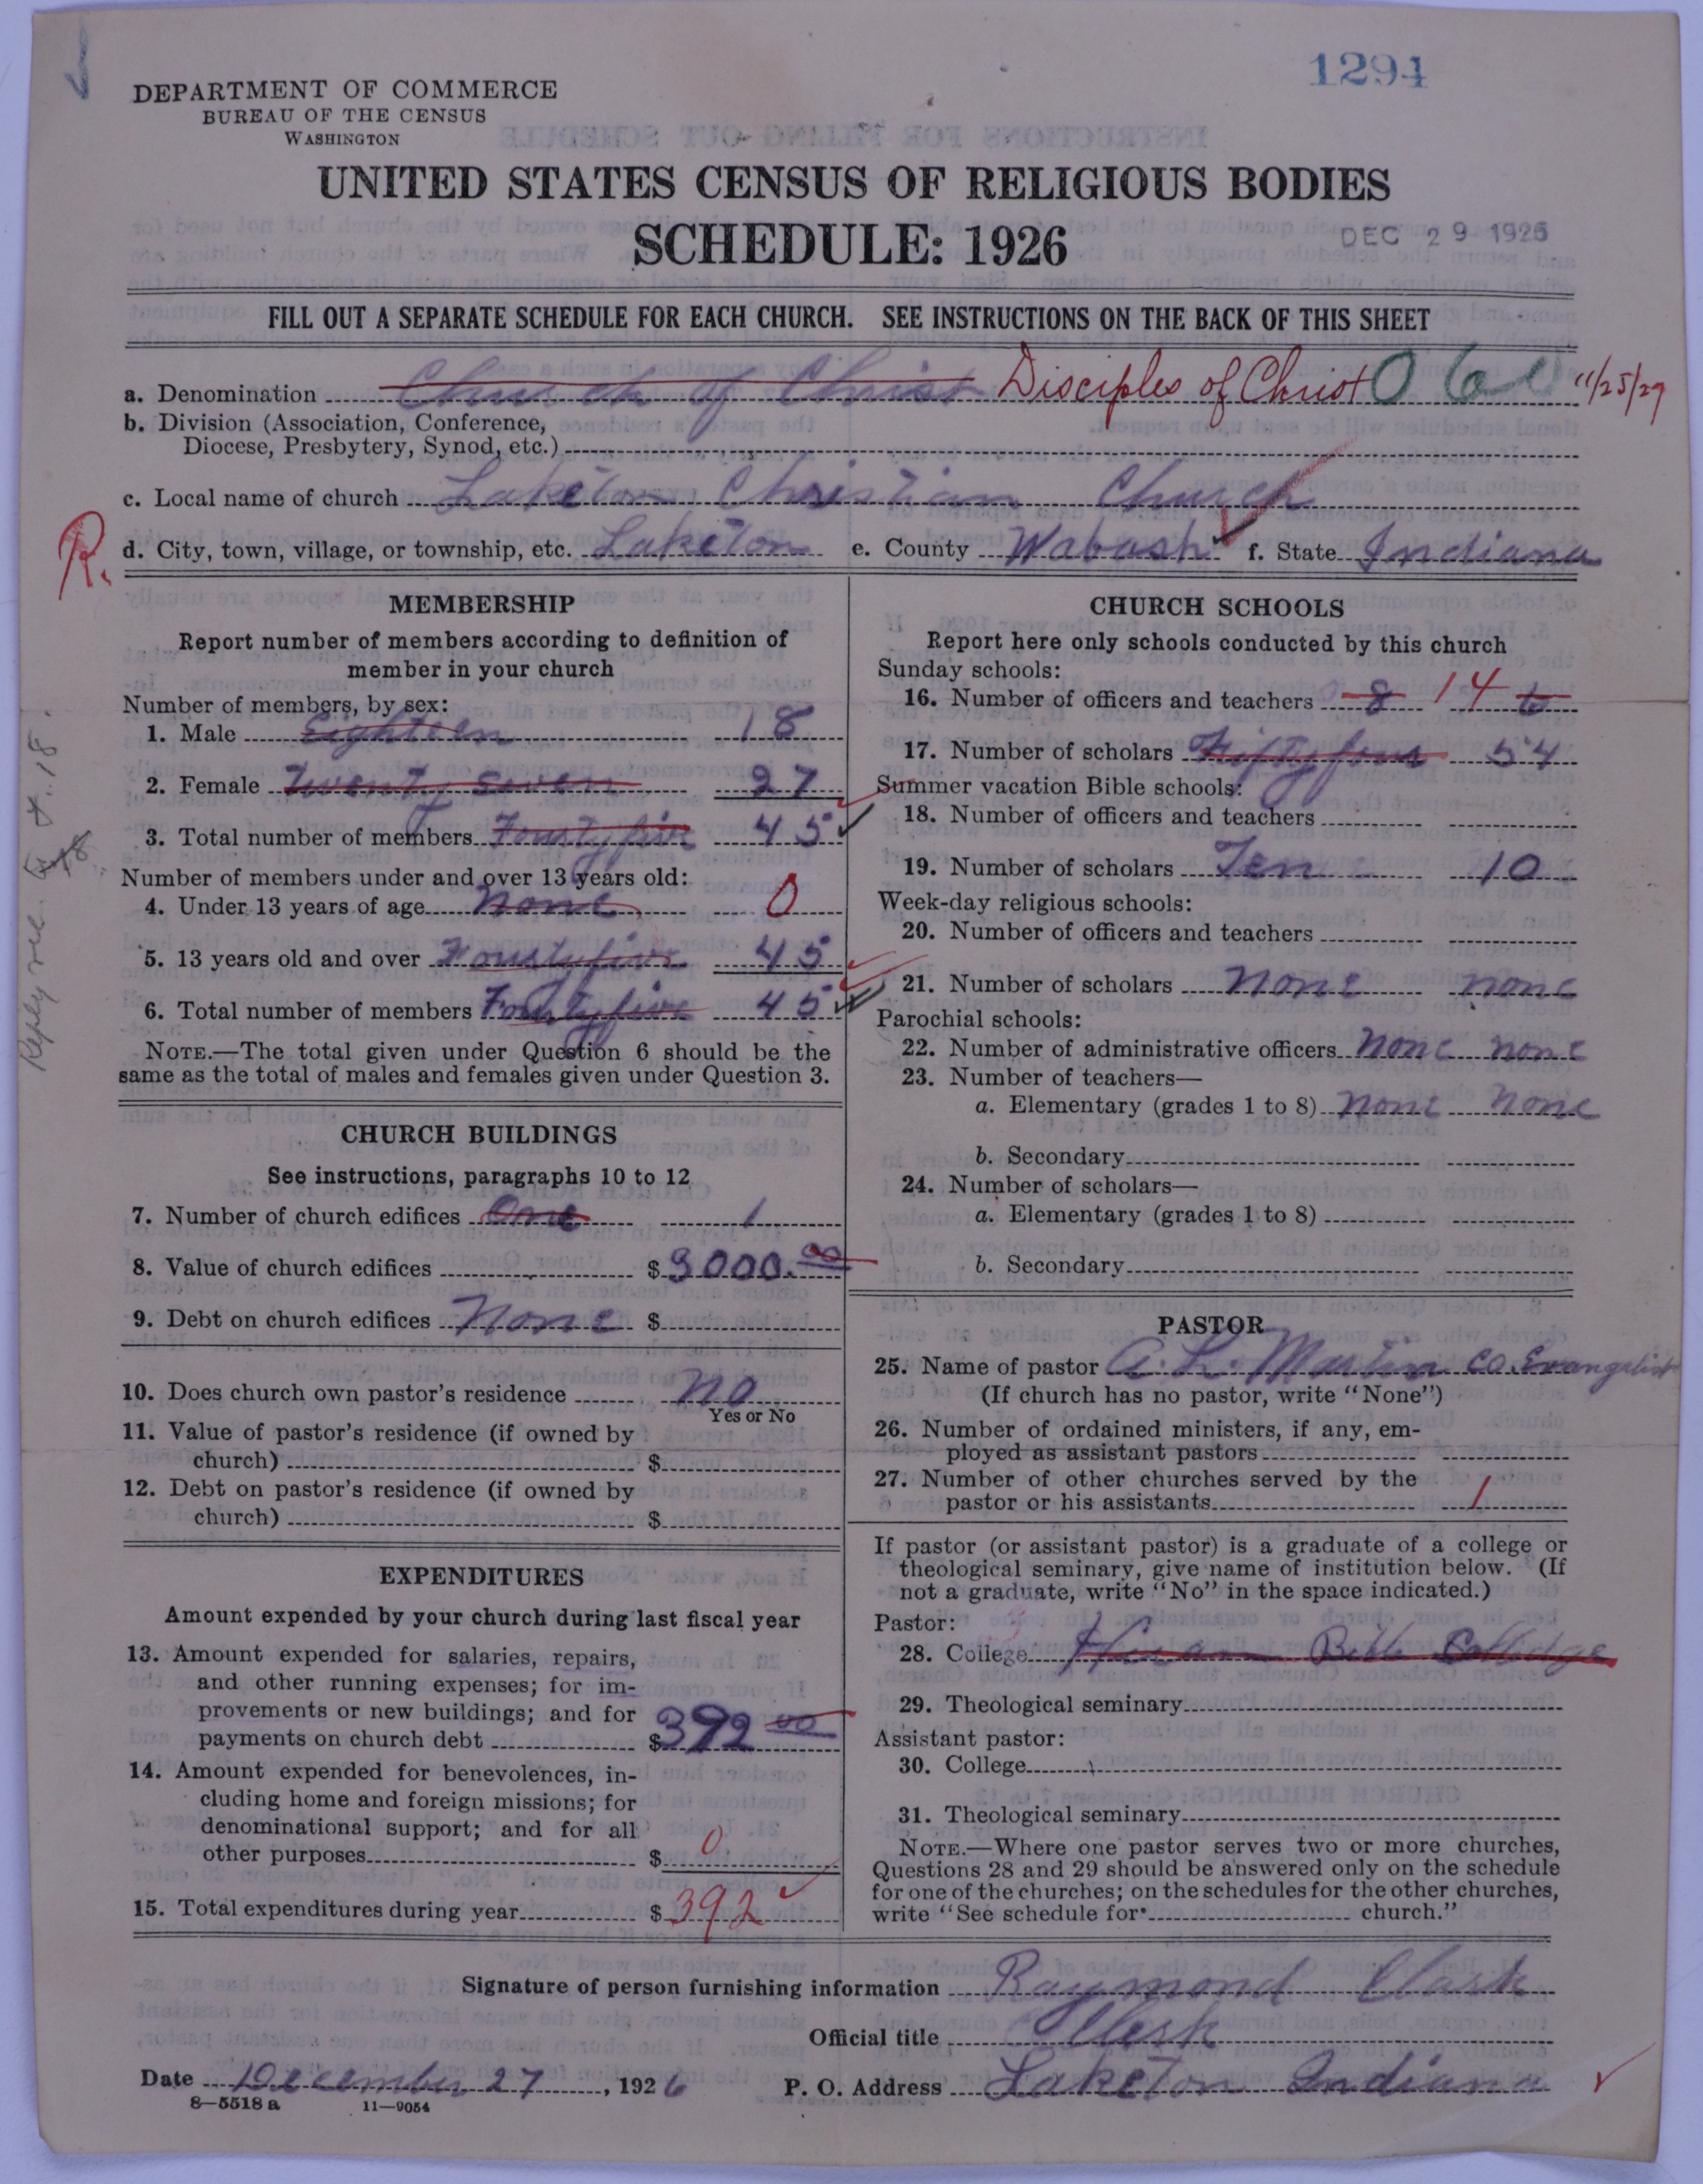 1294
DEPARTMENT OF COMMERCE
BUREAU OF THE CENSUS
WASHINGTON
UNITED STATES CENSUS OF RELIGIOUS BODIES
SCHEDULE: 1926
DEC 29 1926
FILL OUT A SEPARATE SCHEDULE FOR EACH CHURCH. SEE INSTRUCTIONS ON THE BACK OF THIS SHEET
a. Denomination Church of Christ Disciples of Christ 11/25/27
b. Division (Association, Conference,
Diocese, Presbytery, Synod, etc.)
c. Local name of church Laketon Christian Church
R. d. City, town, village, or township, etc. Laketon e. County Wabash f. State Indiana
MEMBERSHIP
Report number of members according to definition of
member in your church
Number of members, by sex:
1. Male Eighteen 18
2. Female Twenty seven 27
3. Total number of members Fourty five 45
Number of members under and over 13 years old:
4. Under 13 years of age None 0
5. 13 years old and over Fourty five 45
6. Total number of members Fourty five 45
NOTE.—The total given under Question 6 should be the
same as the total of males and females given under Question 3.
CHURCH BUILDINGS
See instructions, paragraphs 10 to 12
7. Number of church edifices One 1
8. Value of church edifices $3000.00
9. Debt on church edifices None $
10. Does church own pastor's residence No
Yes or No
11. Value of pastor's residence (if owned by
church) $
12. Debt on pastor's residence (if owned by
church) $
EXPENDITURES
Amount expended by your church during last fiscal year
13. Amount expended for salaries, repairs,
and other running expenses; for im-
provements or new buildings; and for
payments on church debt $392 00
14. Amount expended for benevolences, in-
cluding home and foreign missions; for
denominational support; and for all
other purposes $ 0
15. Total expenditures during year $392
CHURCH SCHOOLS
Report here only schools conducted by this church
Sunday schools:
16. Number of officers and teachers 8 14 6
17. Number of scholars Fifty four 54
Summer vacation Bible schools:
18. Number of officers and teachers
19. Number of scholars Ten 10
Week-day religious schools:
20. Number of officers and teachers
21. Number of scholars None none
Parochial schools:
22. Number of administrative officers None none
23. Number of teachers—
a. Elementary (grades 1 to 8) None None
b. Secondary
24. Number of scholars—
a. Elementary (grades 1 to 8)
b. Secondary
PASTOR
25. Name of pastor A. L. Martin Co. Evangelist
(If church has no pastor, write "None")
26. Number of ordained ministers, if any, em-
ployed as assistant pastors
27. Number of other churches served by the
pastor or his assistants 1
If pastor (or assistant pastor) is a graduate of a college or
theological seminary, give name of institution below. (If
not a graduate, write "No" in the space indicated.)
Pastor:
28. College Bible Colledge
29. Theological seminary
Assistant pastor:
30. College
31. Theological seminary
NOTE.—Where one pastor serves two or more churches,
Questions 28 and 29 should be answered only on the schedule
for one of the churches; on the schedules for the other churches,
write "See schedule for church."
Signature of person furnishing information Raymond Clark
Official title Clerk
Date December 27, 1926 P. O. Address Laketon Indiana
8—5518 a 11—9054